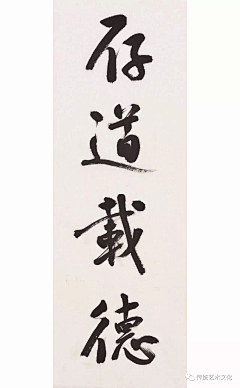 存道載德
传统艺术文化